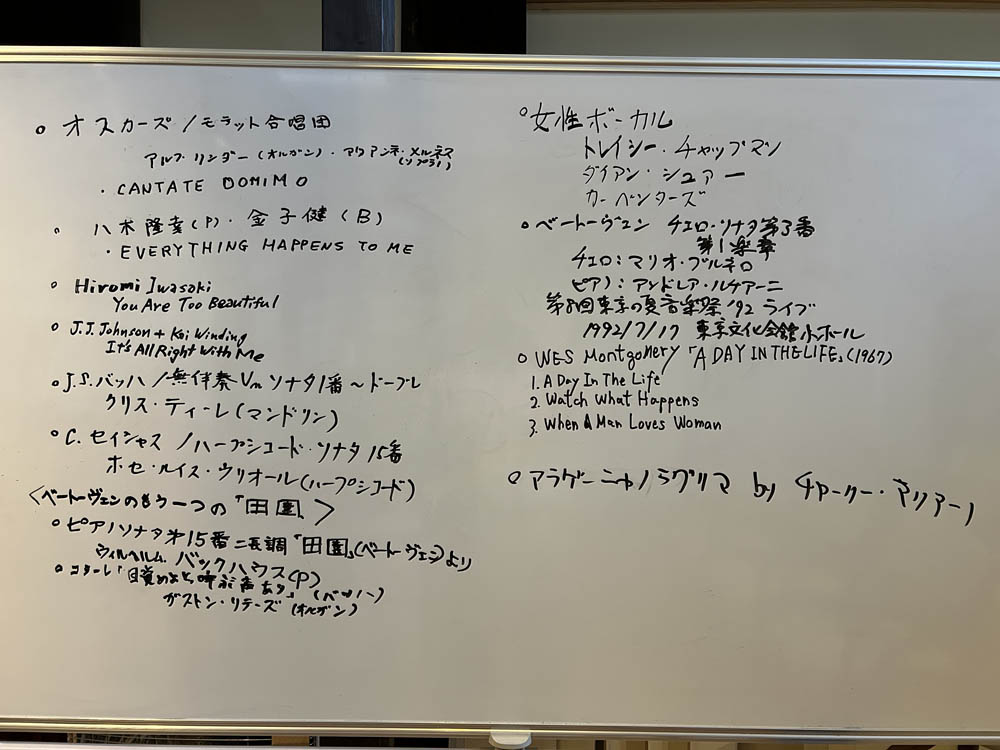 ○ オスカーズ / モテット合唱団
アルフ・リンダー (オルガン)・マリアンネ・メルネス (ソプラノ)
・CANTATE DOMIMO
○ 八木隆幸(P)・金子健(B)
・EVERYTHING HAPPENS TO ME
○ Hiromi Iwasaki
You Are Too Beautiful
○ J.J. Johnson + Kai Winding
It's All Right With Me
○ J.S.バッハ / 無伴奏Vnソナタ1番〜ドーブレ
クリス・ティーレ(マンドリン)
○ C.セイシャス / ハープシコード・ソナタ15番
ホセ・ルイス・ウリオール(ハープシコード)
〈ベートーヴェンのもう一つの「田園」〉
○ ピアノソナタオ15番ニ長調「田園」(ベートーヴェン)より
ウィルヘルム.バックハウス(P)
○ コラール「目覚めよと呼ぶ声あり」(バッハ)
ガストン・リテーズ (オルガン)
○ 女性ボーカル
トレイシー・チャップマン
ダイアン・シュアー
カーペンターズ
○ ベートーヴェン チェロ・ソナタ第3番
第1楽章
チェロ:マリオ・ブルネロ
ピアノ:アンドレア・ルケアーニ
第8回東京の夏音楽祭'92 ライブ
1992/7/17 東京文化会館小ホール
○ WES Montgomery 「A DAY IN THE LIFE」(1967)
1. A Day In The Life
2. Watch What Happens
3. When A Man Loves Woman
○ アラゲーニャ / ラグリマ by チャーリー・マリアーノ